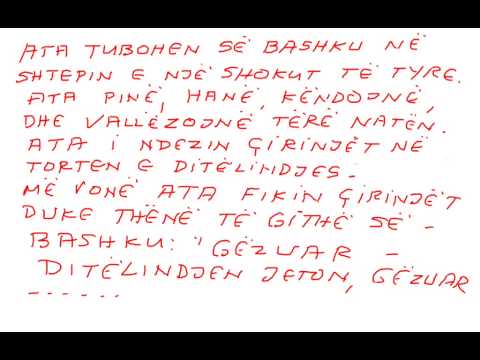 ATA TUBOHEN SË BASHKU NË
SHTEPIN E NJË SHOKUT TË TYRE.
ATA PINË, HANË, KËNDOJNË,
DHE VALLËZOJNË TËRË NATËN.
ATA I NDEZIN ÇIRINJËT NË
TORTEN E DITËLINDJES.
MË VONË ATA FIKIN ÇIRINJËT
DUKE THËNË TË GITHË SË -
BASHKU: "GËZUAR -
DITËLINDJEN JETON, GËZUAR
-- .....